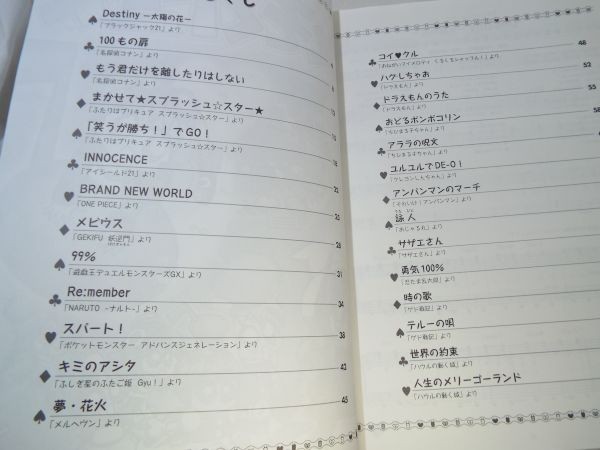 くじ
♠ Destiny －太陽の花－
「ブラックジャック21」より
♣ 100もの扉
「名探偵コナン」より
♥ もう君だけを離したりはしない
「名探偵コナン」より
♦ まかせて★スプラッシュ☆スター★
「ふたりはプリキュア スプラッシュ☆スター」より
♠ 「笑うが勝ち！」でGO！
「ふたりはプリキュア スプラッシュ☆スター」より
♣ INNOCENCE
「アイシールド21」より
22
♥ BRAND NEW WORLD
「ONE PIECE」より
25
♦ メビウス
「GEKIFU 妖逆門」より
28
♠ 99%
「遊戯王デュエルモンスターズGX」より
31
♣ Re:member
「NARUTO -ナルト-」より
34
♥ スパート！
「ポケットモンスター アドバンスジェネレーション」より
38
♦ キミのアシタ
「ふしぎ星のふたご姫 Gyu！」より
42
♠ 夢・花火
「メルヘヴン」より
45
♣ コイ♥クル
「おねがいマイメロディ くるくるシャッフル！」より
48
♥ ハグしちゃお
「ドラえもん」より
52
♦ ドラえもんのうた
「ドラえもん」より
55
♠ おどるポンポコリン
「ちびまる子ちゃん」より
♣ アララの呪文
「ちびまる子ちゃん」より
♥ ユルユルでDE-O！
「クレヨンしんちゃん」より
♦ アンパンマンのマーチ
「それいけ！アンパンマン」より
♠ 詠人
「おじゃる丸」より
♣ サザエさん
「サザエさん」より
♥ 勇気100%
「忍たま乱太郎」より
♦ 時の歌
「ゲド戦記」より
♠ テルーの唄
「ゲド戦記」より
♣ 世界の約束
「ハウルの動く城」より
♥ 人生のメリーゴーランド
「ハウルの動く城」より